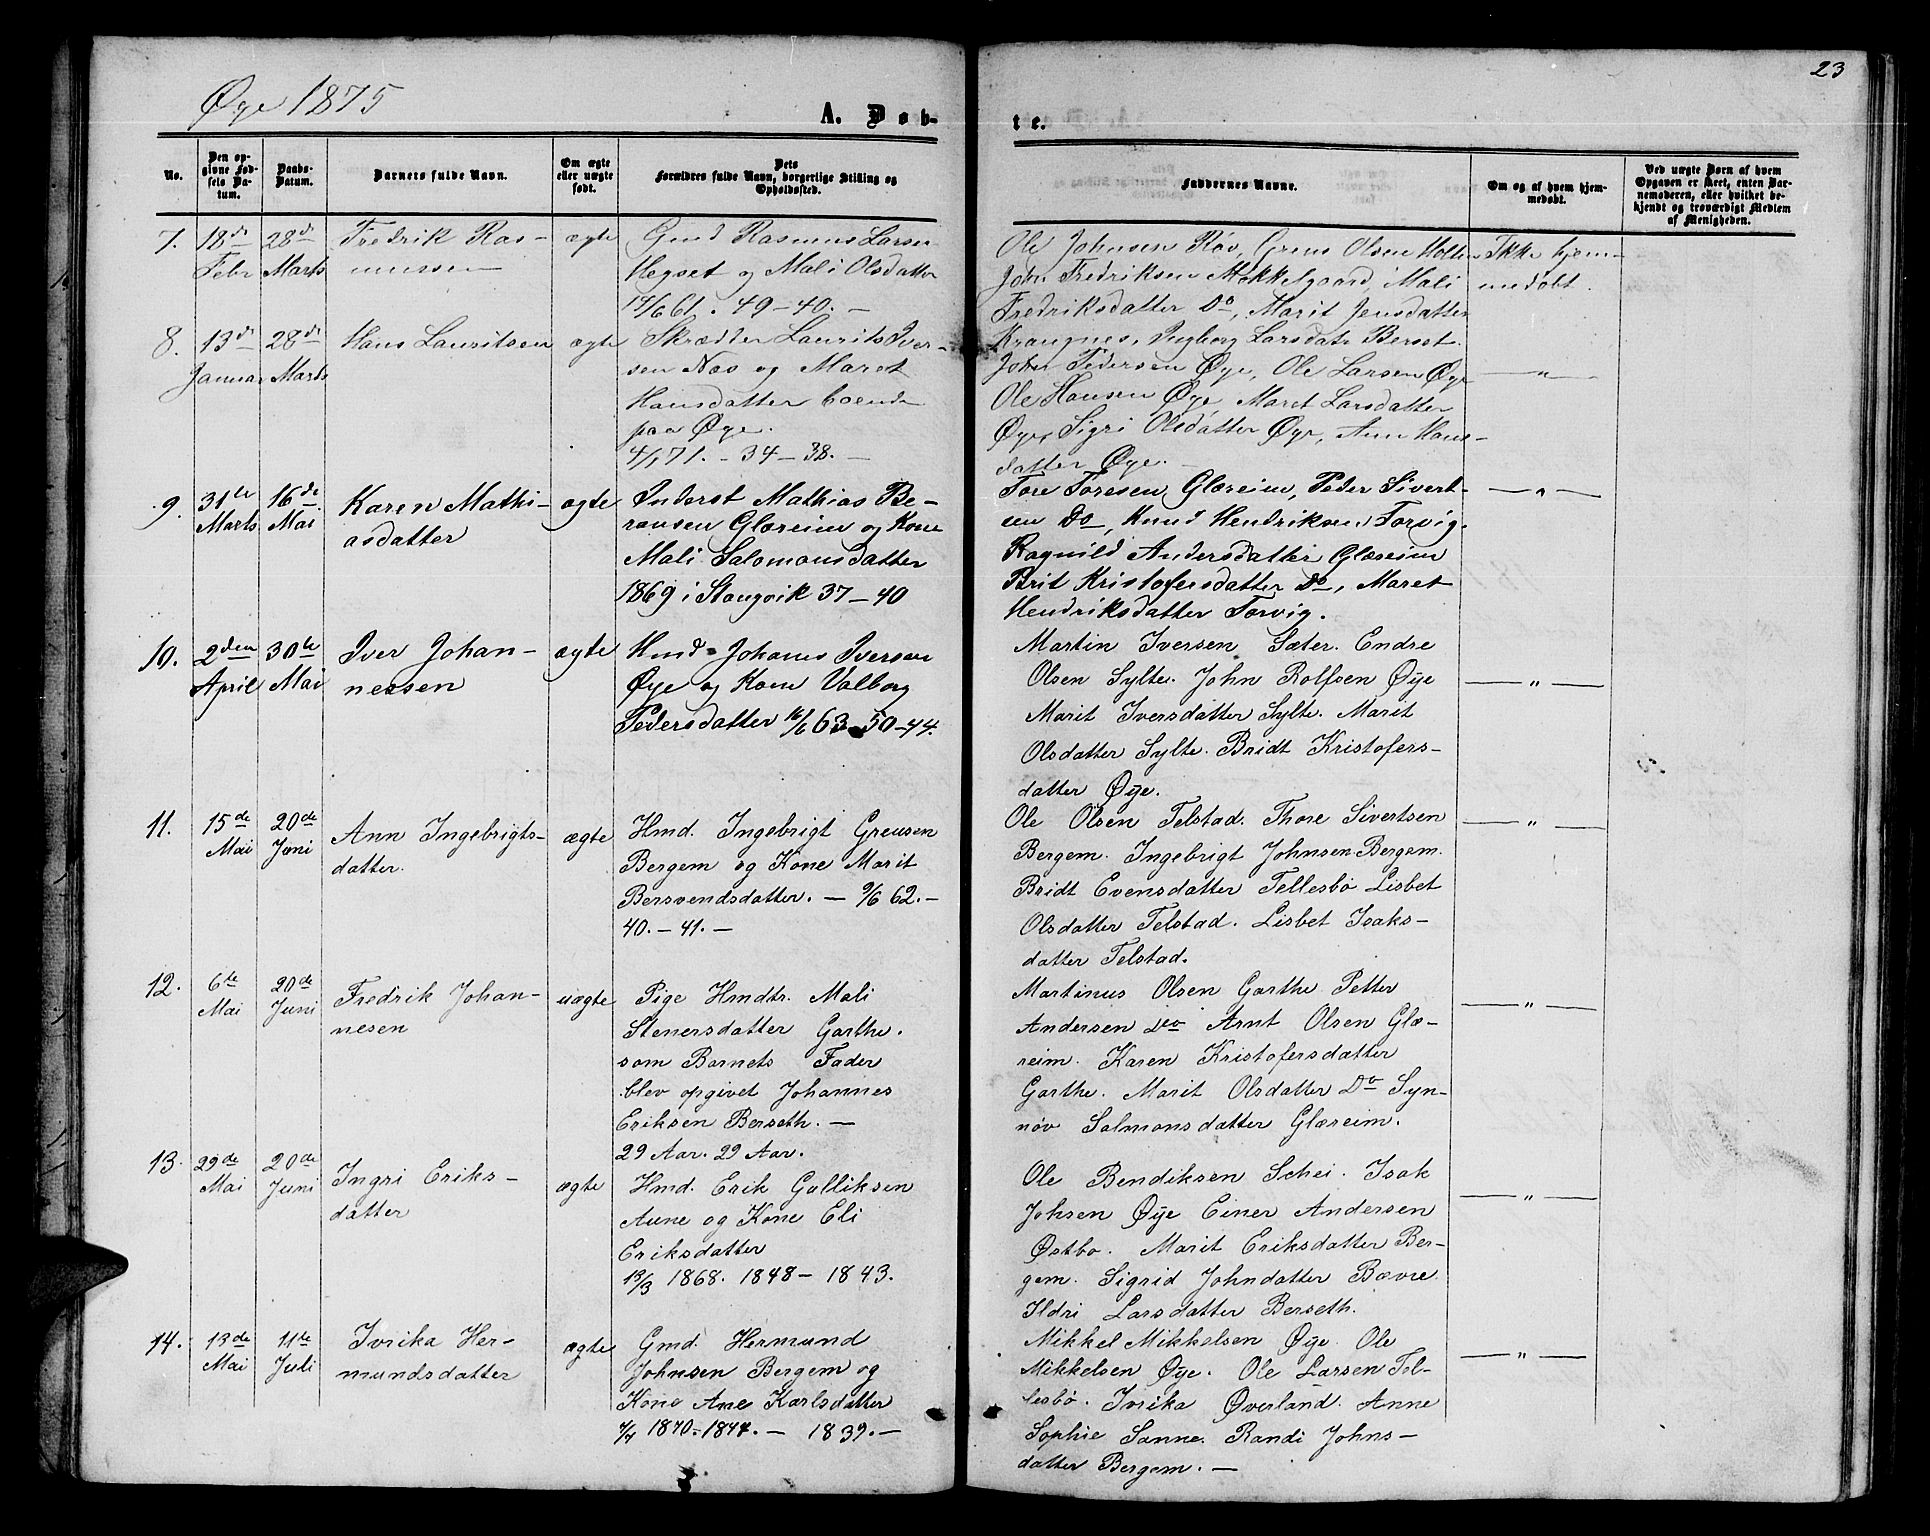 23
Øye 1875
A. Døb-
te.
No.
Den op-
givne Fød-
sels Da-
tum.
Daabs-
Datum.
Barnets fulde Navn.
Om ægte
eller uægte
født.
Dets
Forældres fulde Navn, borgerlige Stilling og
Opholdssted.
Faddernes Navne.
Om og af hvem hjem-
medøbt.
Ved uægte Børn af hvem
Opgaven er skeet, enten Bar-
nemoderen, eller hvilket be-
kjendt og troværdigt Medlem
af Menigheden.
7. 18de Febr 28de Marts
Fredrik Ras-
mussen
ægte
Gmd Rasmus Larsen
Hegset og Mali Olsdatter
14/6 61. 49-40. -
Ole Johnsen Røv, Grens Olsen Holten
John Fredriksen Mokkelgaard, Mali
Fredriksdatter Do, Marit Jensdatter
Krangnes, Ingborg Larsdatr Berset.
Ikke hjem-
medøbt.
8. 13de Januar 28de Marts
Hans Lauritsen
ægte
Skrædder Laurits Iver-
sen Nos og Maret
Hansdatter boende
paa Øye.
4/1 71. - 34-38. -
John Pedersen Øye, Ole Larsen Øye
Ole Hansen Øye, Maret Larsdatter
Øye, Sigri Olsdatter Øye, Ann Hans-
datter Øye.
— " —
9. 31te Marts 16de Mai
Karen Mathi-
asdatter
ægte
Inderst Mathias Be-
ransen Glæreim og Kone
Mali Salomonsdatter
1869 i Stangvik 37-40
Tore Toresen Glæreim, Peder Sivert-
sen Do, Knud Hendriksen Torvig.
Ragnild Andersdatter Glæseim
Brit Kristofersdatter Do, Maret
Hendriksdatter Torvig.
— " —
10. 2den April 30te Mai
Iver Johan-
nessen
ægte
Hmd Johanes Iversen
Øye og Kone Valborg
Pedersdatter 16/6 63 50-44.
Martin Iversen Sæter. Endre
Olsen Sylte. John Rolfsen Øye
Marit Iversdatter Sylte. Marit
Olsdatter Sylte. Bridt Kristofers-
datter Øye.
— " —
11. 15de Mai 20de Juni
Ann Ingebrigts-
datter.
ægte
Hmd. Ingebrigt Grensen
Bergem og Kone Marit
Bersvendsdatter. - 9/6 62. -
40. - 41. -
Ole Olsen Telstad. Thore Sivertsen
Bergem. Ingebrigt Johnsen Bergem.
Bridt Evensdatter Tellesbø Lisbet
Olsdatter Telstad. Lisbet Isaks-
datter Telstad.
— " —
12. 6te Mai 20de Juni
Fredrik Johan-
nesen
uægte
Pige Hmdtr. Mali
Stenersdatter Garthe.
som Barnets Fader
blev opgivet Johannes
Eriksen Berseth. -
29 Aar. 29 Aar.
Martinus Olsen Garthe Petter
Andersen Deo Arnt Olsen Glæ-
reim. Karen Kristofersdatter
Garthe. Marit Olsdatter Do Syn-
növ Salmonsdatter Glæreim.
— " —
13. 29de Mai 20de Juni
Ingri Eriks-
datter
ægte
Hmd. Erik Gulliksen
Aune og Kone Eli
Eriksdatter
13/3 1868. 1848 - 1843.
Ole Bendiksen Schei. Isak
Johsen Øye Einer Andersen
Østbø. Marit Eriksdatter Ber-
gem. Sigrid Johndatter Bævre
Ildri Larsdatter Berseth.
— " —
14. 13de Mai 11te Juli
Ivrika Her-
mundsdatter
ægte
Gmd. Hermund
Johnsen Bergem og
Kone Ane Karlsdatter
1870 - 1844. - 1839. -
Mikkel Mikkelsen Øye. Ole
Mikkelsen Øye. Ole Larsen Tel-
lesbø. Ivrika Øverland. Anne
Sophie Sanne. Randi Johns-
datter Bergem. -
— " —